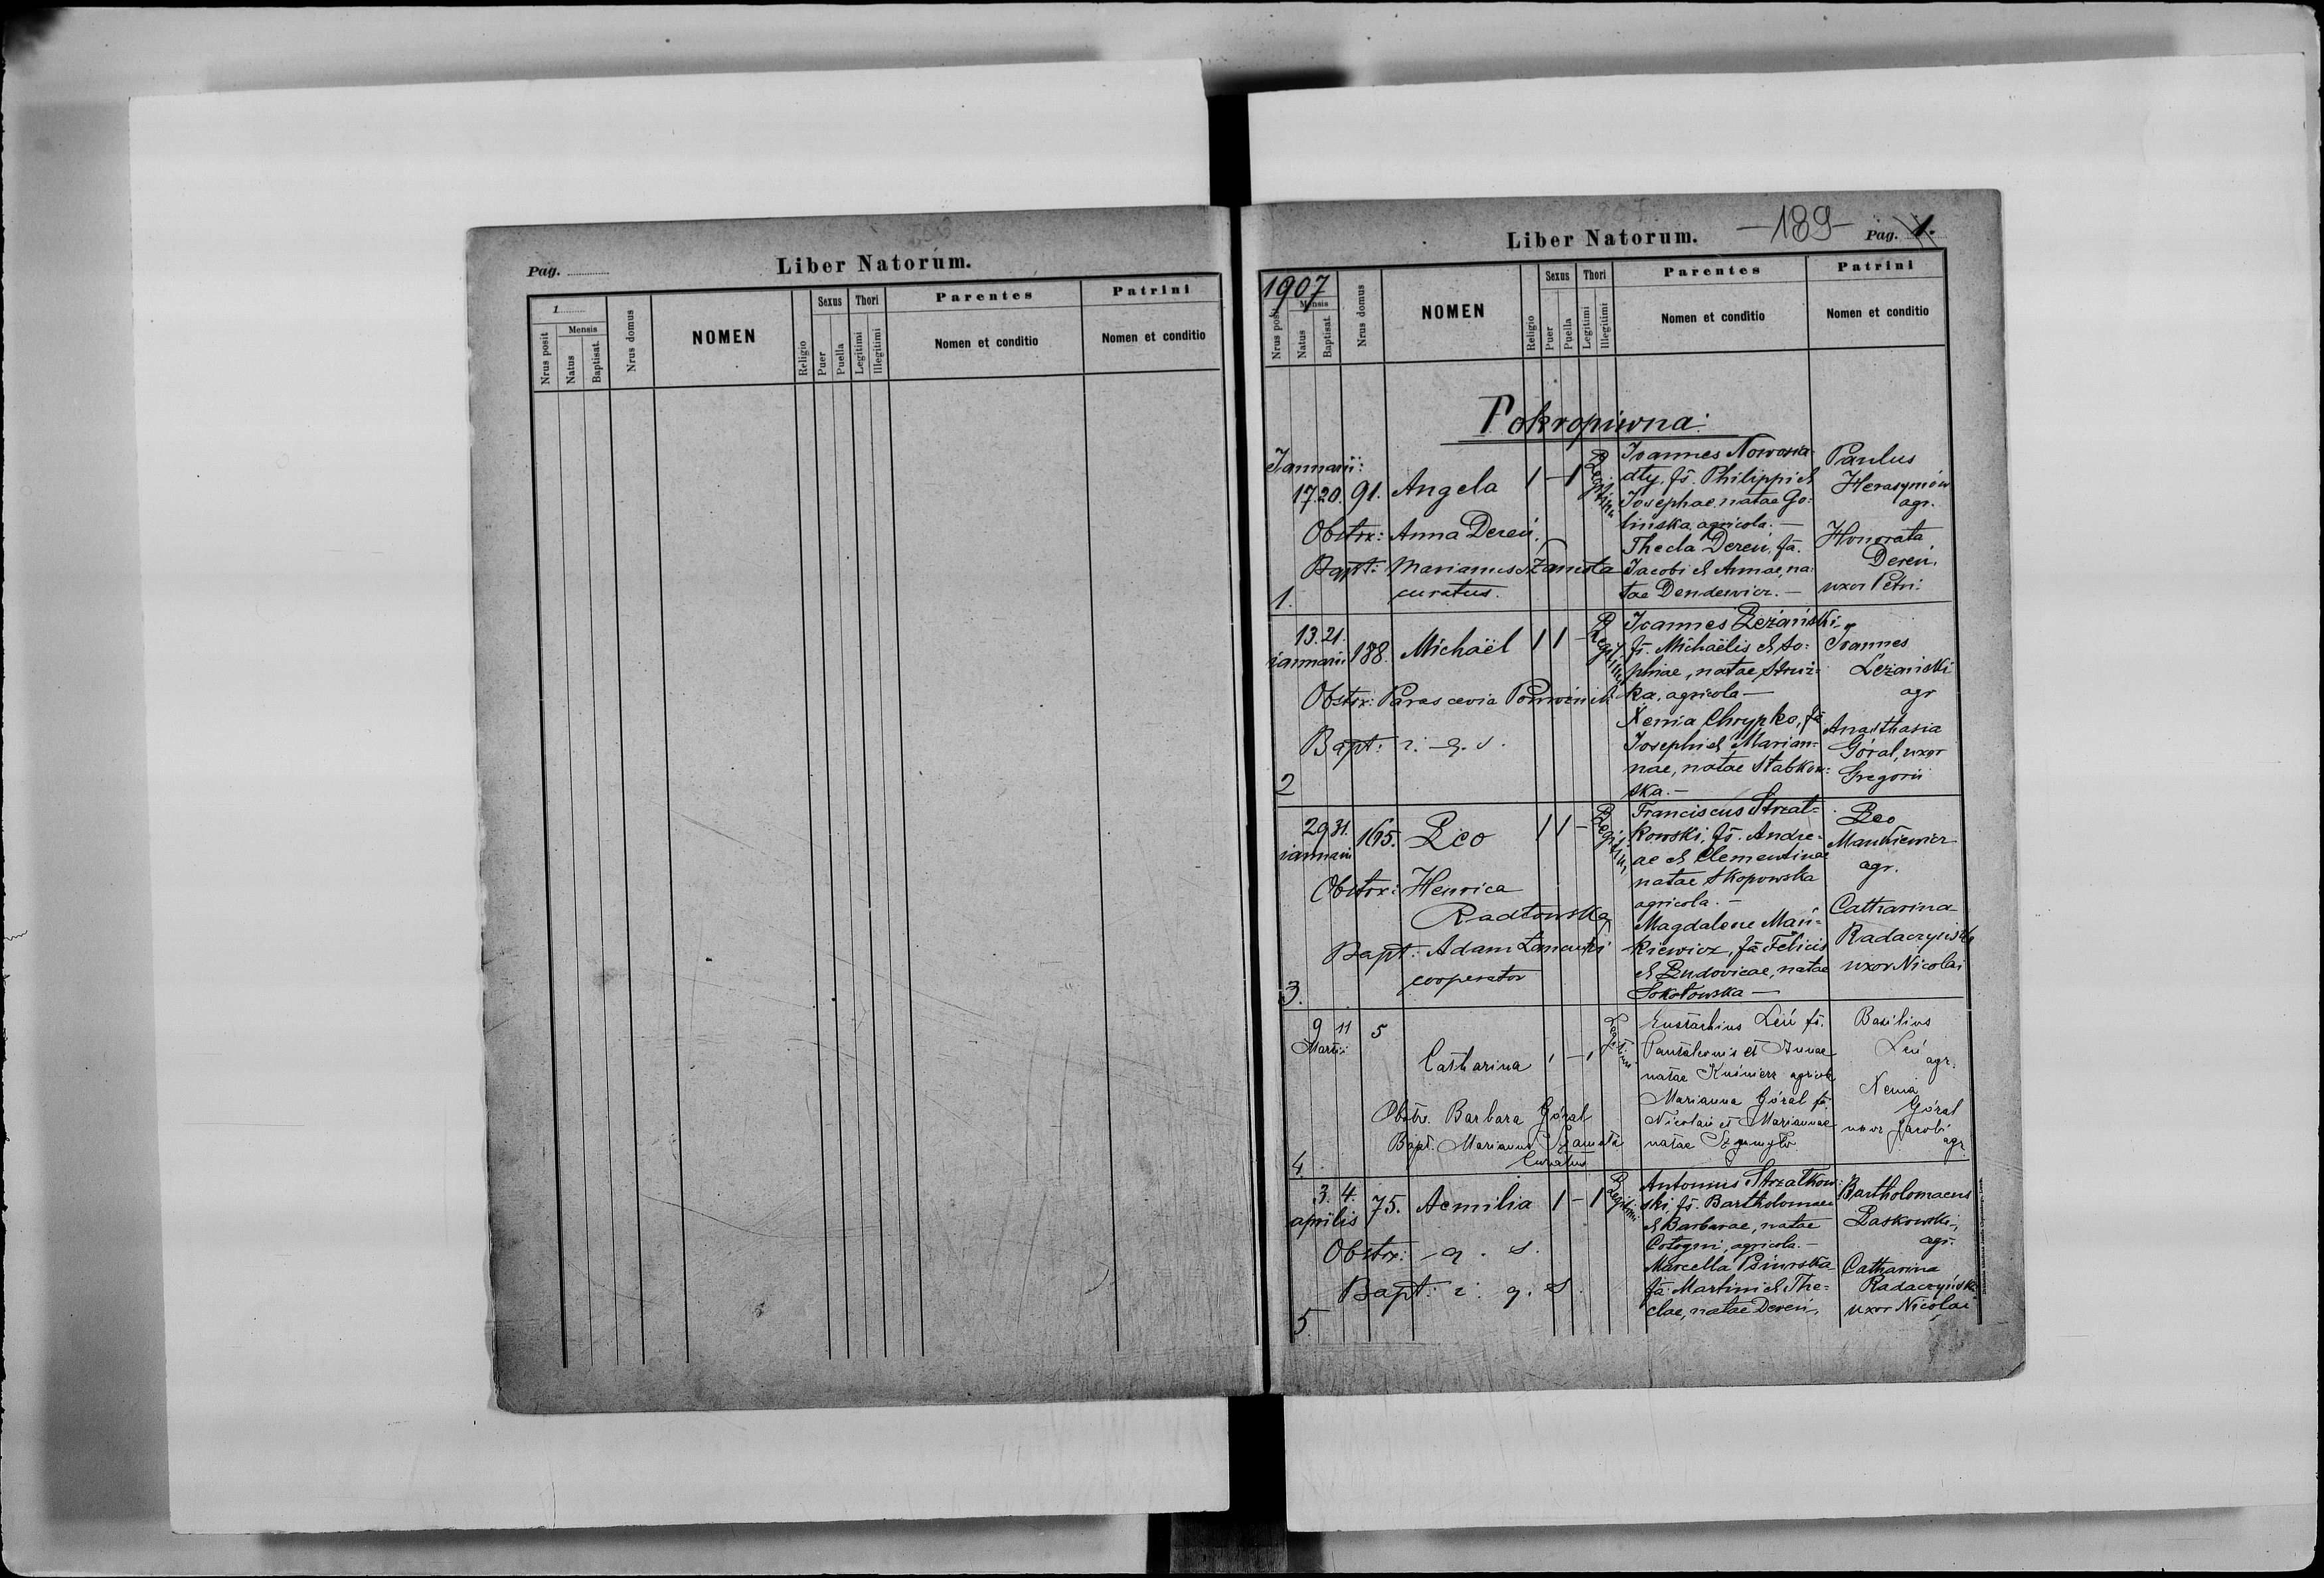 Pag.
Liber Natorum.
1
Nrus posit
Mensis
Natus
Baptisat.
Nrus domus
NOMEN
Religio
Sexus
Puer
Puella
Thori
Legitimi
Illegitimi
Parentes
Nomen et conditio
Patrini
Nomen et conditio
Liber Natorum.
-189-
Pag. 1.
1907
Nrus posit
Mensis
Natus
Baptisat.
Nrus domus
NOMEN
Religio
Sexus
Puer
Puella
Thori
Legitimi
Illegitimi
Parentes
Nomen et conditio
Patrini
Nomen et conditio
Pokropiwna:
Januarii:
17. 20. 91. Angela 1 - 1 Legitimi
Obstrx: Anna Dereń,
Bapt: Marianus Szamota
curatus.
1.
Joannes Nowosia-
dły, fs. Philippi et
Josephae natae Go-
linska, agricola. -
Thecla Dereń, fa.
Jacobi et Annae, na-
tae Dendewicz. -
Paulus
Herasymów
agr.
Honorata
Dereń,
uxor Petri.
13. 21.
januarii 188. Michaël 1 1 - Legitimi
Obstrx: Parascevia
Bapt: i. q. s.
2
Joannes Leżański,
fs. Michaëlis et So-
phiae, natae
ka, agricola -
Xenia Chrypko, fa
Josephi et Marian-
nae, natae Stabkow-
ska. -
Joannes
Leżański
agr
Anasthasia
Góral, uxor
Gregorii
29 31.
januarii 165. Leo 1 1 - Legitimi,
Obstrx: Henrica
Radłowska
Bapt: Adam Łancucki
cooperator
3.
Franciscus Strzał-
kowski, fs. Andre-
ae et Clementinae
natae Skopowska
agricola. -
Magdalene Mań-
kiewicz, fa Felicis
et Ludovicae, natae
Sokołowska -
Leo
Mańkiewicz
agr.
Catharina
Radaczyńska
uxor Nicolai
9 11 5
Martii
Catharina 1 - 1 Legitimi
Obstrx. Barbara Góral
Bapt. Marianus Szamota
Curatus
4.
Eustachius Leń fs.
Pantaleonis et Annae
natae Kuśnierz agricola
Marianna Góral fa.
Nicolai et Mariannae
natae
Basilius
Leń
agr.
Xenia
Góral
uxor Jacobi
agr.
3. 4.
aprilis 75. Aemilia 1 - 1 Legitimi
Obstrx: q. s.
Bapt: i. q. s.
5.
Antonius Strzałkow-
ski, fs. Bartholomaei
et Barbarae, natae
agricola. -
Marcella
fa. Martini et The-
clae, natae Dereń,
Bartholomaeus
Laskowski,
agr.
Catharina
Radaczyńska
uxor Nicolai